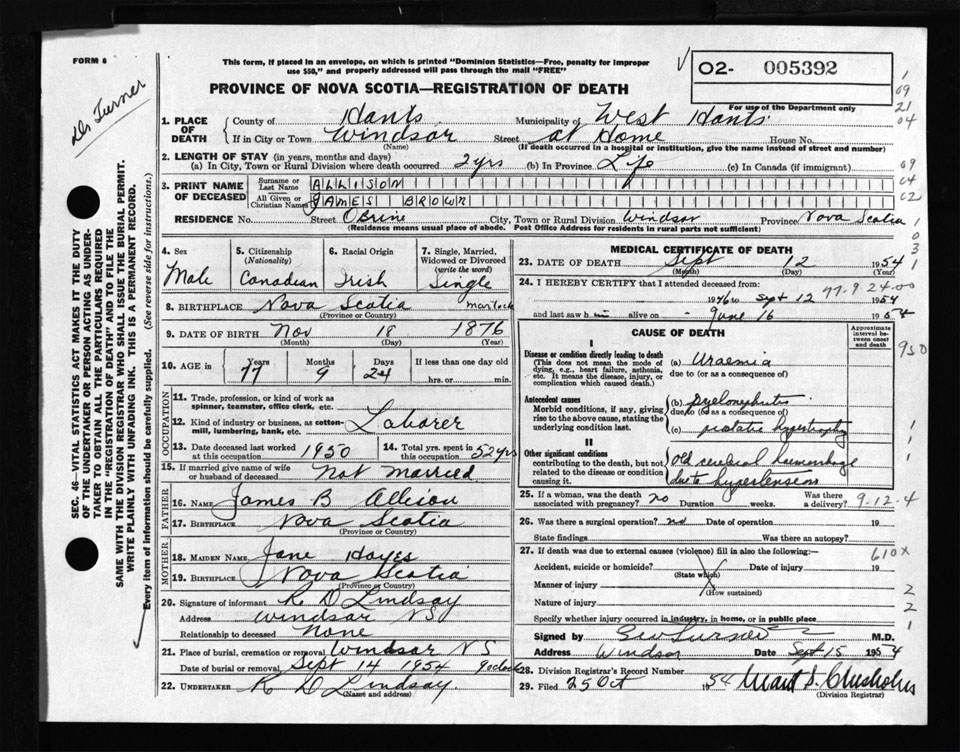 FORM 6
This form, if placed in an envelope, on which is printed "Dominion Statistics—Free, penalty for improper
use $50," and properly addressed will pass through the mail "FREE"
PROVINCE OF NOVA SCOTIA—REGISTRATION OF DEATH
02- 005392
For use of the Department only
Dr Turner
SEC. 46—VITAL STATISTICS ACT MAKES IT THE DUTY
OF THE UNDERTAKER OR PERSON ACTING AS UNDER-
TAKER TO OBTAIN ALL THE PARTICULARS REQUIRED
IN THE "REGISTRATION OF DEATH" AND TO FILE THE
SAME WITH THE DIVISION REGISTRAR WHO SHALL ISSUE THE BURIAL PERMIT.
WRITE PLAINLY WITH UNFADING INK. THIS IS A PERMANENT RECORD.
Every item of information should be carefully supplied. (See reverse side for instructions.)
1. PLACE OF DEATH
County of Hants Municipality of West Hants
If in City or Town Windsor Street at Home House No.
(Name) (If death occurred in a hospital or institution, give the name instead of street and number)
2. LENGTH OF STAY (in years, months and days)
(a) In City, Town or Rural Division where death occurred 2 yrs (b) In Province Life (c) In Canada (if immigrant)
3. PRINT NAME OF DECEASED
Surname or Last Name ALLISON
All Given or Christian Names JAMES BROWN
RESIDENCE No. Street O'Brine City, Town or Rural Division Windsor Province Nova Scotia
(Residence means usual place of abode. Post Office Address for residents in rural parts not sufficient)
4. Sex Male
5. Citizenship (Nationality) Canadian
6. Racial Origin Irish
7. Single, Married, Widowed or Divorced (write the word) Single
8. BIRTHPLACE Nova Scotia
(Province or Country)
9. DATE OF BIRTH Nov 18 1876
(Month) (Day) (Year)
10. AGE in Years 77 Months 9 Days 24 If less than one day old hrs. or min.
OCCUPATION
11. Trade, profession, or kind of work as spinner, teamster, office clerk, etc.
12. Kind of industry or business, as cotton-mill, lumbering, bank, etc. Laborer
13. Date deceased last worked at this occupation 1950
14. Total yrs. spent in this occupation 52 yrs
15. If married give name of wife or husband of deceased Not married
FATHER
16. NAME James B Allison
17. BIRTHPLACE Nova Scotia
(Province or Country)
MOTHER
18. MAIDEN NAME Jane Hayes
19. BIRTHPLACE Nova Scotia
(Province or Country)
20. Signature of informant R D Lindsay
Address Windsor NS
Relationship to deceased None
21. Place of burial, cremation or removal Windsor NS
Date of burial or removal Sept 14 1954 9 oclock
22. UNDERTAKER R D Lindsay
(Name and address)
MEDICAL CERTIFICATE OF DEATH
23. DATE OF DEATH Sept 12 1954
(Month) (Day) (Year)
24. I HEREBY CERTIFY that I attended deceased from:
1946 to Sept 12 1954
77-9-24-00
and last saw him alive on June 16 1954
CAUSE OF DEATH
Approximate interval between onset and death
I
Disease or condition directly leading to death
(This does not mean the mode of dying, e.g., heart failure, asthenia, etc. It means the disease, injury, or complication which caused death.)
(a) Uraemia
due to (or as a consequence of)
Antecedent causes
Morbid conditions, if any, giving rise to the above cause, stating the underlying condition last.
(b) Pyelonephritis
due to (or as a consequence of)
(c) prostatic hypertrophy
II
Other significant conditions
contributing to the death, but not related to the disease or condition causing it.
Old cerebral haemorrhage
due to hypertension
25. If a woman, was the death associated with pregnancy? no Duration weeks. Was there a delivery?
9-12-4
26. Was there a surgical operation? no Date of operation 19
State findings Was there an autopsy?
27. If death was due to external causes (violence) fill in also the following:—
610x
Accident, suicide or homicide? Date of injury 19
(State which)
Manner of injury
(How sustained)
Nature of injury
Specify whether injury occurred in industry, in home, or in public place
Signed by Geo Turner M.D.
Address Windsor Date Sept 15 1954
28. Division Registrar's Record Number
29. Filed 25 Oct 1954
(Division Registrar)